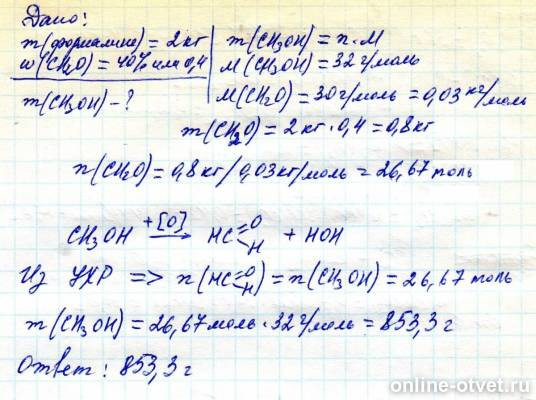 Дано:
m(формалина) = 2 кг
w(CH₂O) = 40% или 0,4
m(CH₃OH) - ?
m(CH₃OH) = n·M
M(CH₃OH) = 32 г/моль
M(CH₂O) = 30 г/моль = 0,03 кг/моль
m(CH₂O) = 2 кг · 0,4 = 0,8 кг
n(CH₂O) = 0,8 кг / 0,03 кг/моль = 26,67 моль
CH₃OH +[O] → HC=O H + HOH
Из УХР => n(HC=O H) = n(CH₃OH) = 26,67 моль
m(CH₃OH) = 26,67 моль · 32 г/моль = 853,3 г
Ответ: 853,3 г
online-otvet.ru